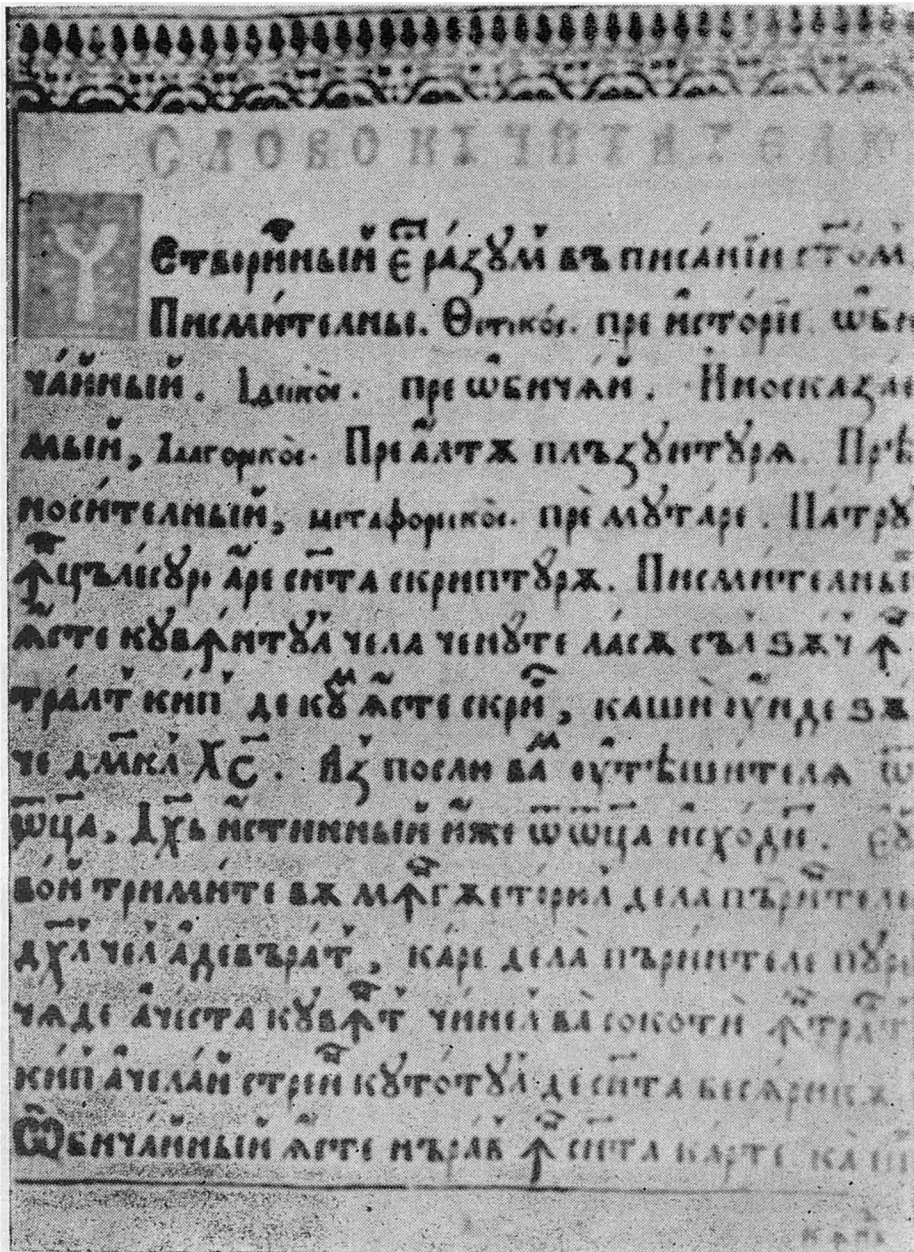 Етворни́ный є҃ ра́ꙁꙋм въ писа́нїи ст҃о́м
Писми́телны. Ѳетико́с. пре исто́рїе ѡби
ча́йный. Ідико̀с. пре ѡбичѧ́й. Иносказае
мый, Алагорико̀с. Пре а́лтѫ плъꙁꙋитꙋрѧ. Прѣ
носи́телный, метафорико̀с. пре мꙋта́ре. Па́трꙋ
ꙟцъле́сꙋри а́ре с҃нта скриптꙋ́рѫ. Писми́телный
ѧ́сте кꙋвꙟ́нтꙋл чела че нꙋте ла́сѫ съл ѕѫ́ч ꙟ
тра́лт ки́п де кꙋм ѧ́сте скри, кашѝ ю҆́нде ѕѫ
че дм҃нл Х҃с. Аꙁ посли вам єутѣши́телѧ ѿ
ѿц҃а, Дх҃ъ и҆́стинный и҆́же ѿ ѿц҃а исхо́ди. Еꙋ
вой трими́те вѫ мꙟгѫето́рил дела пъри́нтеле
дх҃л чел а҆девъра́т, ка́ре дела̀ пъри́нтеле пꙋрꙋ
чѧде а҆че́ста кꙋвꙟ́т чи́нел ва̀ сокоти ꙟтра́лт
ки́п а҆чела́й стреи́н кꙋто́тꙋл де с҃нта бесѧ́рикѫ
Ѡбича́йный ѧ́сте нъра́в ꙟ с҃нта ка́рте ка ш